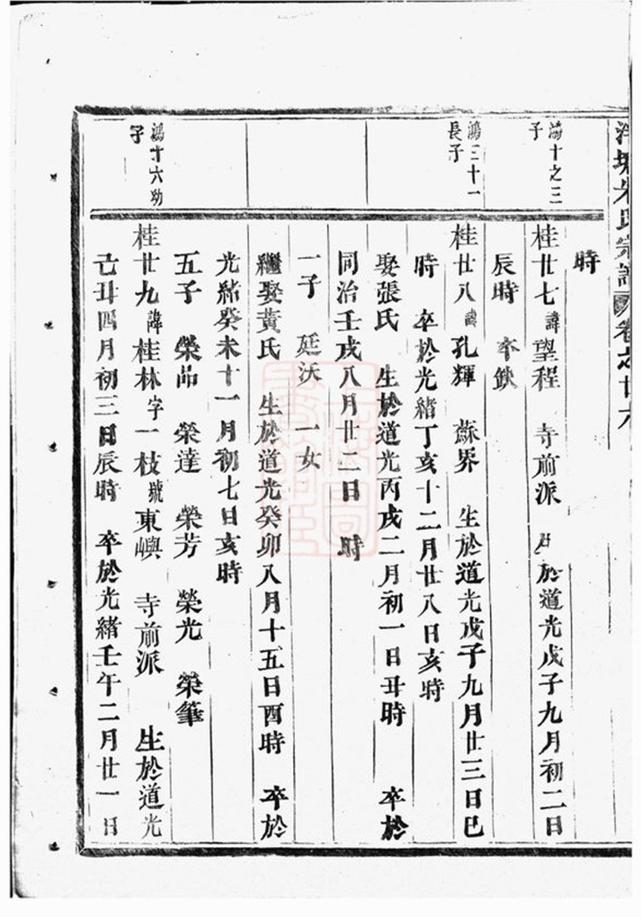 朱氏宗譜 卷之廿六
時
鴻十之三子
桂廿七諱望程 寺前派 生於道光戊子九月初二日
辰時 卒缺
鴻三十一長子
桂廿八諱孔輝 蘇界 生於道光戊子九月廿三日巳
時 卒於光緒丁亥十二月廿八日亥時
娶張氏 生於道光丙戌二月初一日丑時 卒於
同治壬戌八月廿二日 時
一子 廷沃 一女
繼娶黃氏 生於道光癸卯八月十五日酉時 卒於
光緒癸未十一月初七日亥時
五子 榮茆 榮達 榮芳 榮光 榮筆
鴻十六幼子
桂廿九諱桂林字一枝號東嶼 寺前派 生於道光
己丑四月初三日辰時 卒於光緒壬午二月廿一日